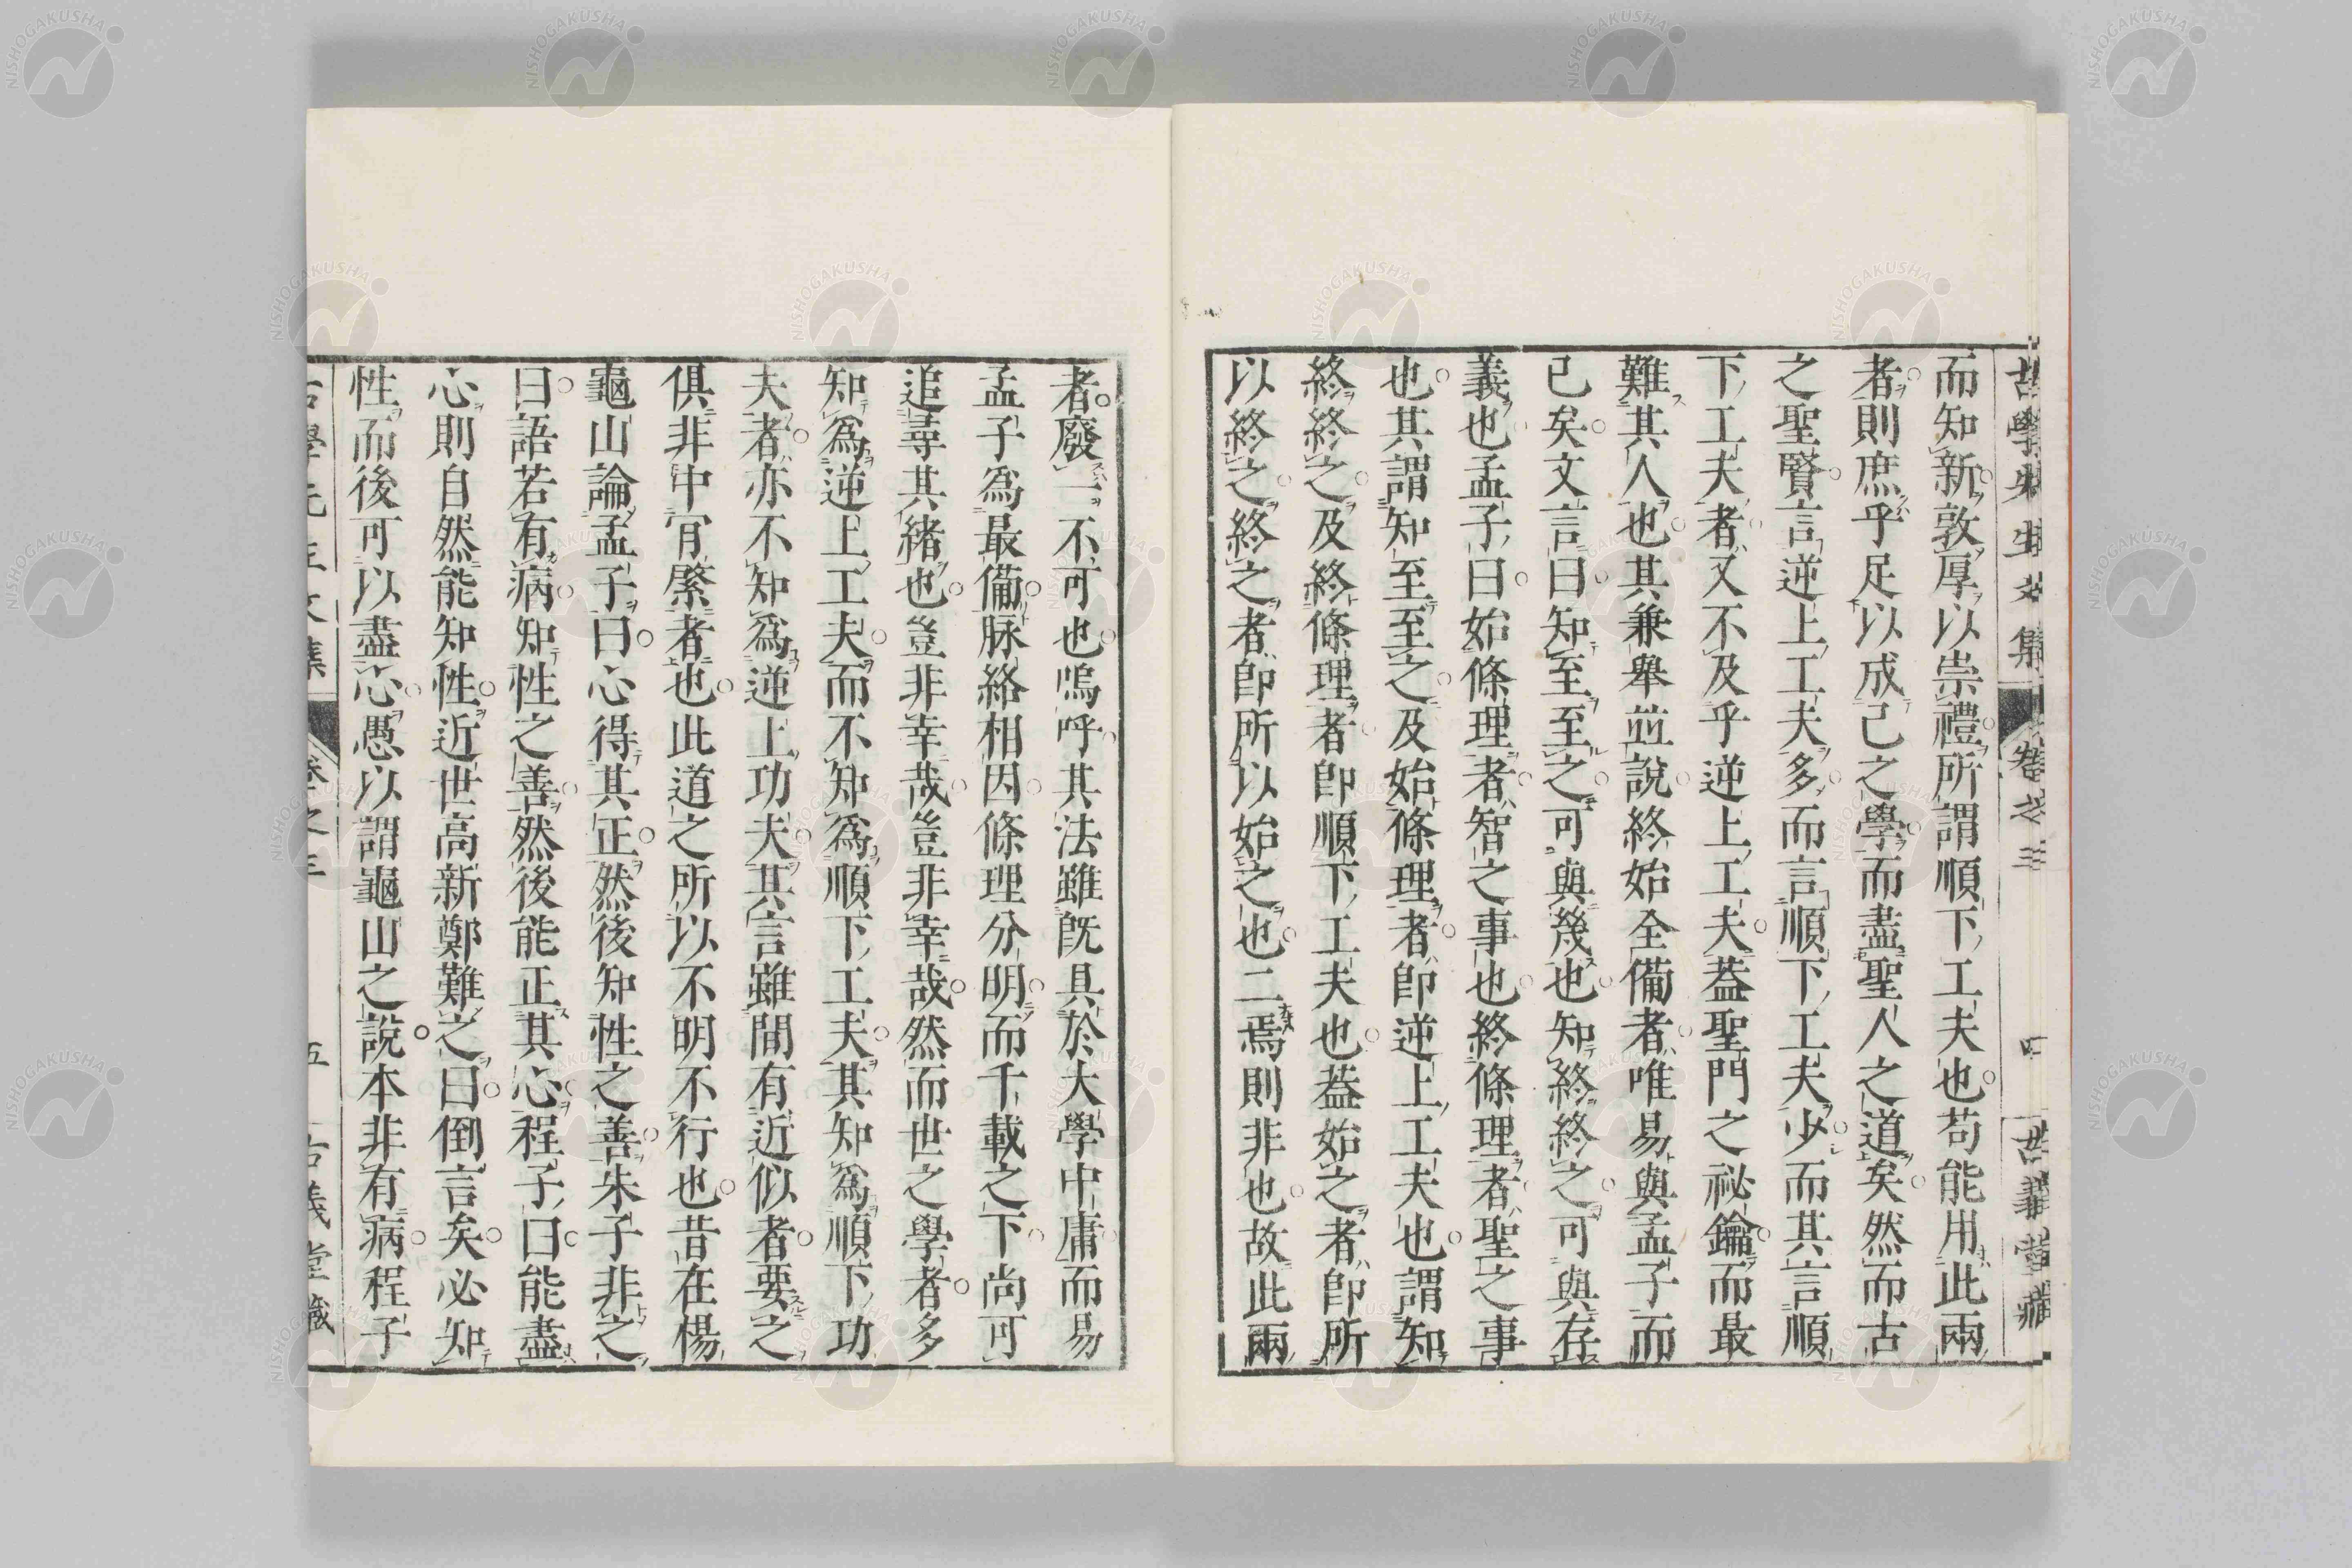 而知新敦厚以崇禮所謂順下工夫也苟能用此兩
者則庶乎足以成己之學而盡聖人之道矣然而古
之聖賢言逆上工夫多而言順下工夫少而其言順
下工夫者又不及乎逆上工夫蓋聖門之祕鑰而最
難其人也其兼舉並說終始全備者唯易與孟子而
已矣文言曰知至至之可與幾也知終終之可與存
義也孟子曰始條理者智之事也終條理者聖之事
也其謂知至至之及始條理者即逆上工夫也謂知
終終之及終條理者即順下工夫也蓋始之者即所
以終之終之者即所以始之也二焉則非也故此兩
者廢一不可也嗚呼其法雖既具於大學中庸而易
孟子為最備脉絡相因條理分明而千載之下尚可
追尋其緒也豈非幸哉豈非幸哉然而世之學者多
知為逆上工夫而不知為順下工夫其知為順下功
夫者亦不知為逆上功夫其言雖間有近似者要之
俱非中肯綮者也此道之所以不明不行也昔在楊
龜山論孟子曰心得其正然後知性之善朱子非之
曰語若有病知性之善然後能正其心程子曰能盡
心則自然能知性近世高新鄭難之曰倒言矣必知
性而後可以盡心愚以謂龜山之說本非有病程子
古學先生文集 卷之三 五 古義堂藏